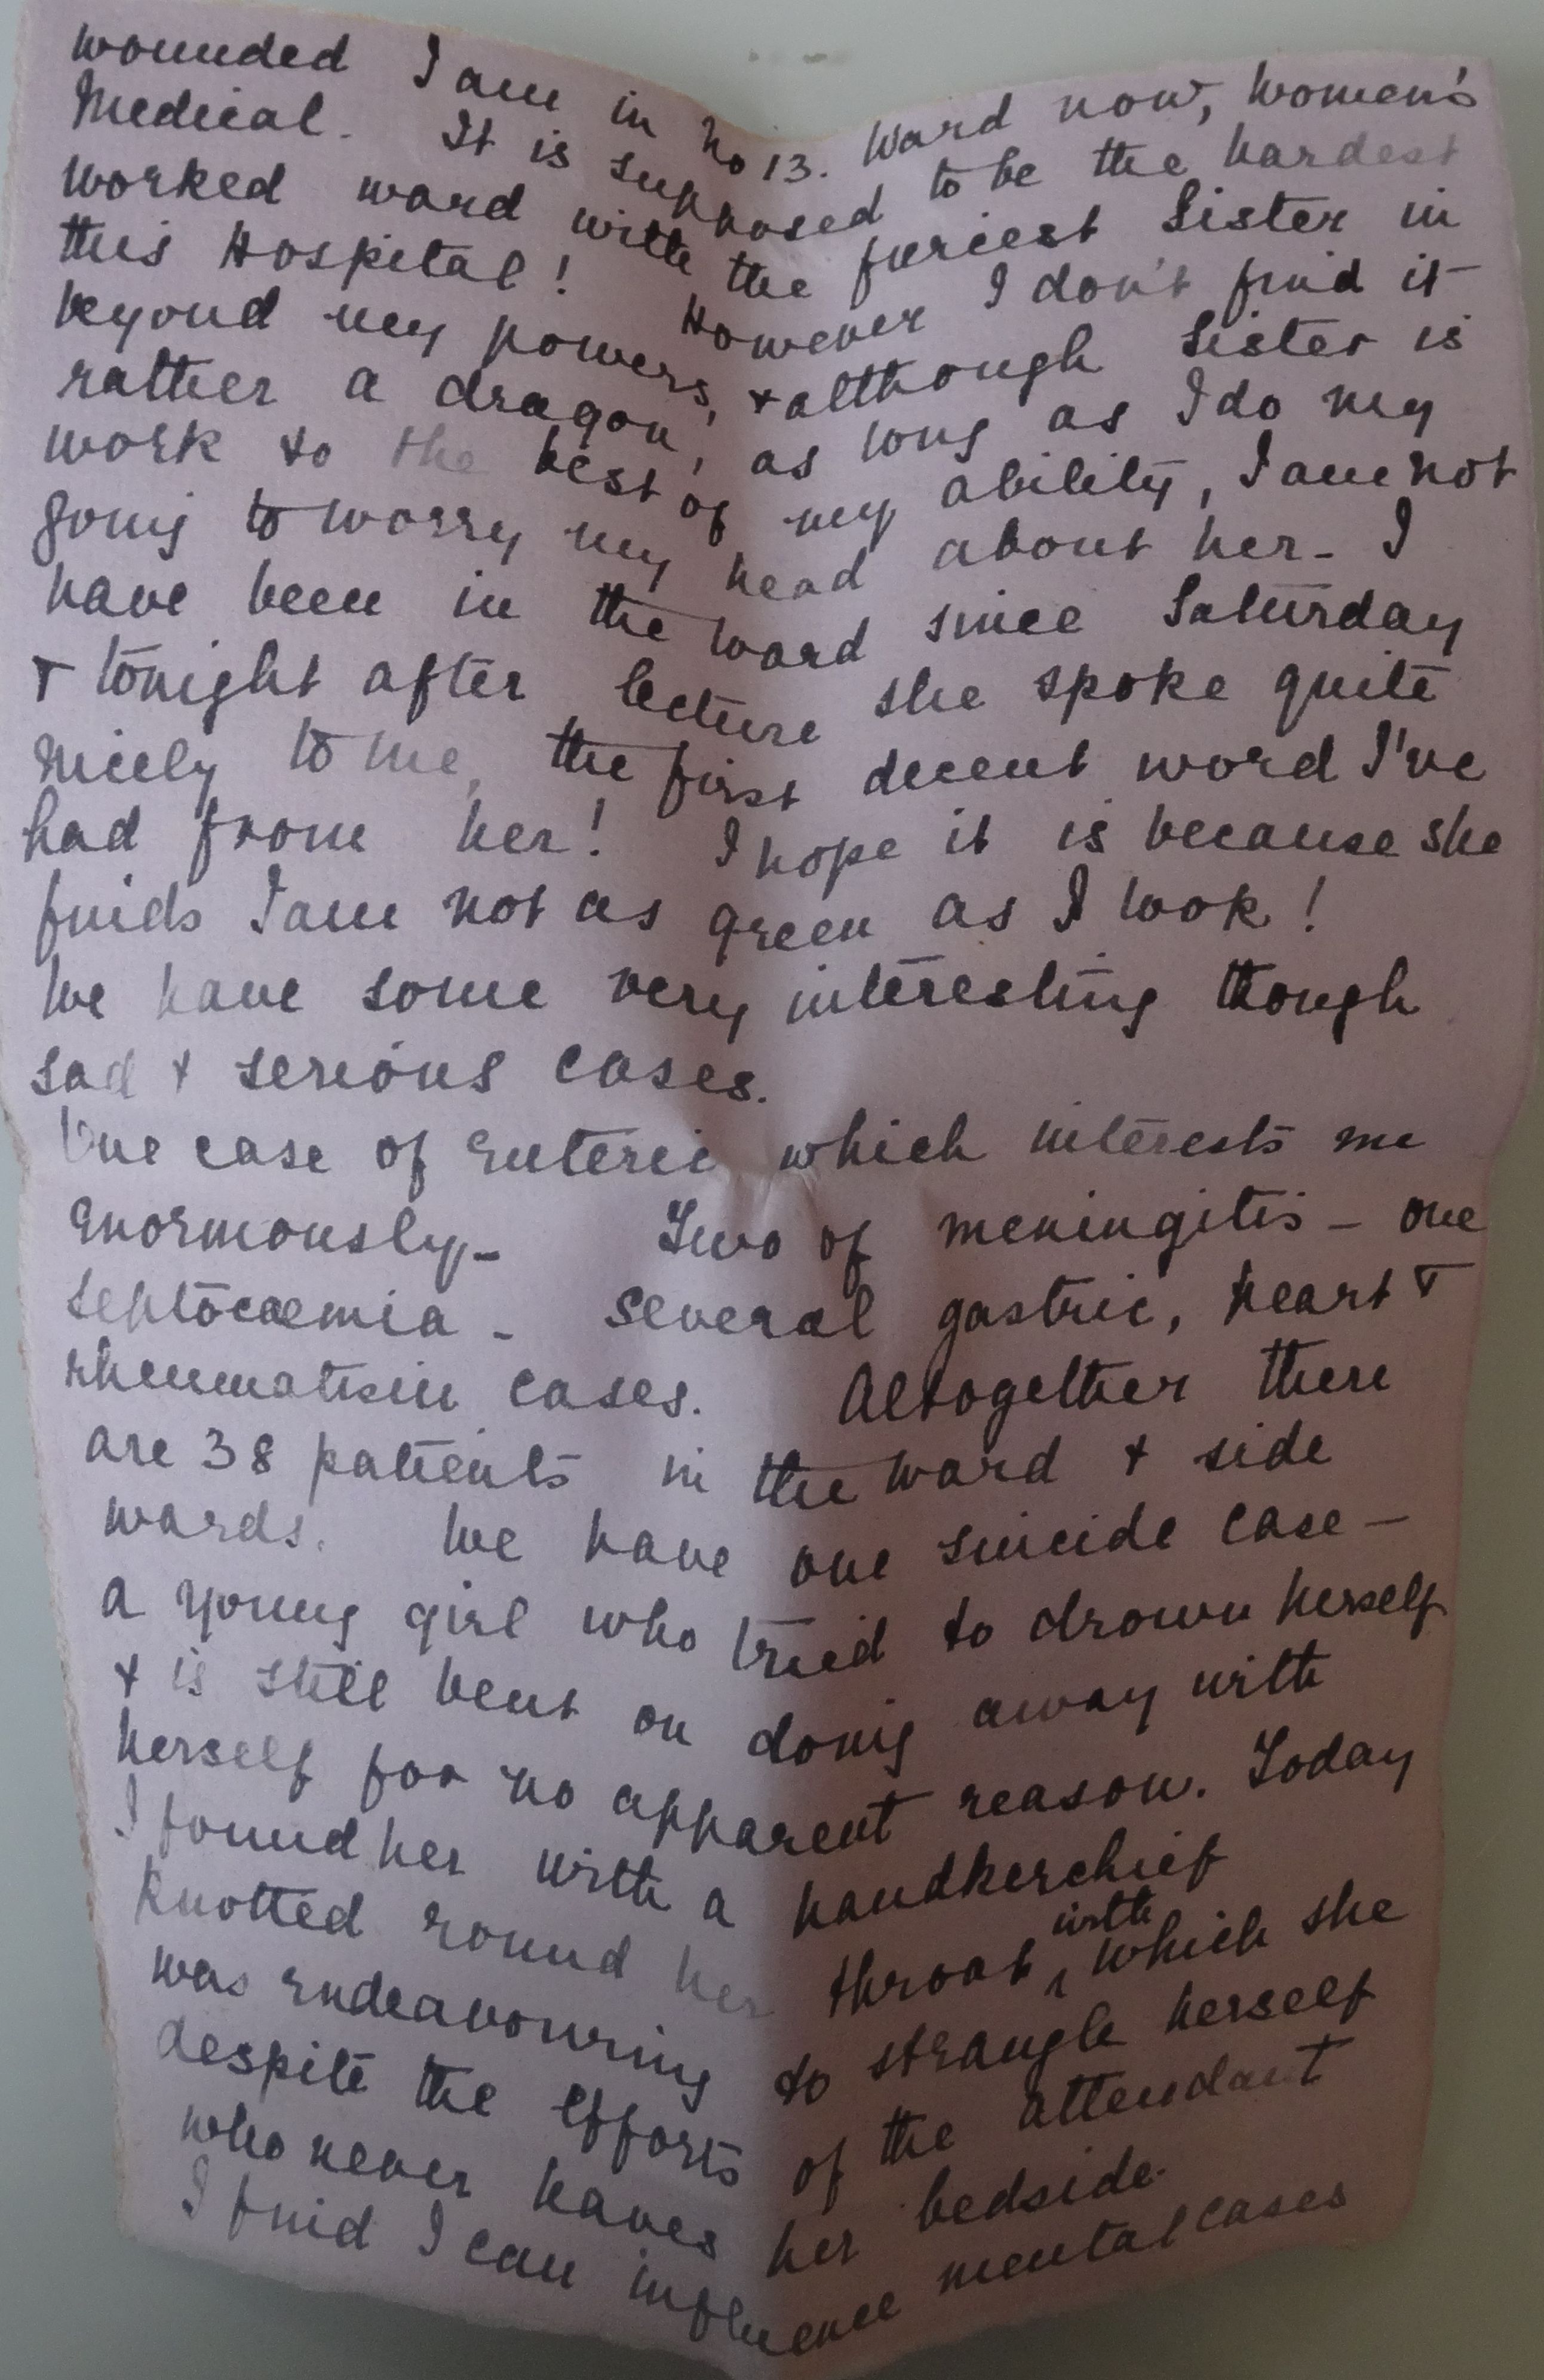 wounded I am in No 13. Ward now, Women's
Medical. It is supposed to be the hardest
worked ward with the furiest Sister in
this Hospital! However I don't find it
beyond my powers, & although Sister is
rather a dragon, as long as I do my
work to the best of my ability, I am not
going to worry my head about her - I
have been in the ward since Saturday
& tonight after lecture she spoke quite
nicely to me, the first decent word I've
had from her! I hope it is because she
finds I am not as green as I look!
We have some very interesting though
sad & serious cases.
One case of Enteric which interests me
enormously - Two of meningitis - one
septocaemia - several gastric, heart &
rheumatism cases. Altogether there
are 38 patients in the ward & side
wards. We have one suicide case -
a young girl who tried to drown herself
& is still bent on doing away with
herself for no apparent reason. Today
I found her with a handkerchief
knotted round her throat with which she
was endeavouring to strangle herself
despite the efforts of the attendant
who never leaves her bedside.
I find I can influence mental cases